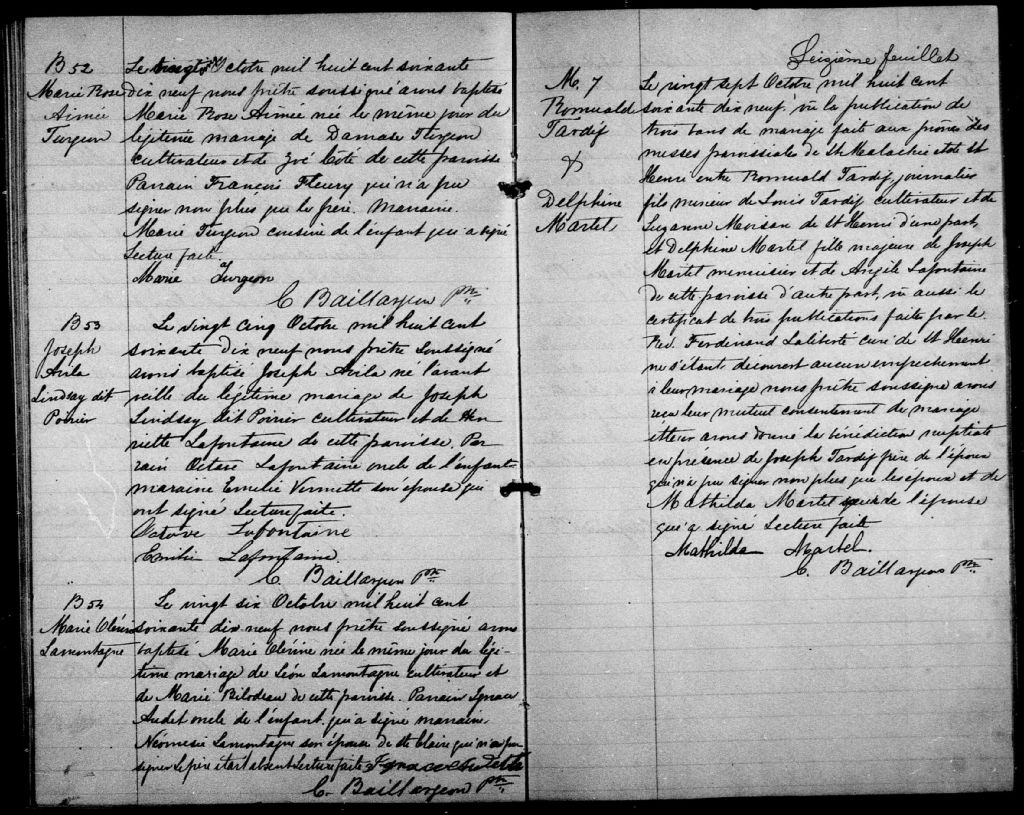 B 52
Marie Rose
Aimée
Turgeon
Le vingt Octobre mil huit cent soixante
dix neuf nous prêtre soussigné avons baptisé
Marie Rose Aimée née le même jour du
légitime mariage de Damase Turgeon
cultivateur et de Zoé Côté de cette paroisse
Parrain François Fleury qui n'a pu
signer non plus que le père. Marraine
Marie Turgeon cousine de l'enfant qui a signé
Lecture faite.
Marie Turgeon
C Baillargeon Ptre
B 53
Joseph
Avila
Lindsay dit
Poirier
Le vingt cinq Octobre mil huit cent
soixante dix neuf nous prêtre soussigné
avons baptisé Joseph Avila né l'avant
veille du légitime mariage de Joseph
Lindsay dit Poirier cultivateur et de Hen
riette Lafontaine de cette paroisse. Par
rain Octave Lafontaine oncle de l'enfant
maraine Emelie Vermette son épouse qui
ont signé Lecture faite.
Octave Lafontaine
Emilie Lafontaine
C. Baillargeon Ptre
B 54
Marie Clérine
Lamontagne
Le vingt six Octobre mil huit cent
soixante dix neuf nous prêtre soussigné avons
baptisé Marie Clérine née le même jour du légi-
time mariage de Léon Lamontagne cultivateur et
de Marie Bilodeau de cette paroisse. Parrain Ignace
Audet oncle de l'enfant qui a signé marraine
Néomésie Lamontagne son épouse de Ste Claire qui n'a pu
signer Le père étant absent Lecture faite Ignace Audette
C. Baillargeon Ptre
Seizième feuillet
M. 7
Romuald
Tardif
&
Delphine
Martel
Le vingt sept Octobre mil huit cent
soixante dix neuf, vu la publication de
trois bans de mariage faite aux prônes des
messes paroissiales de St Malachie et de St
Henri entre Romuald Tardif, journalier
fils mineur de Louis Tardif cultivateur et de
Suzanne Morisan de St Henri d'une part,
et Delphine Martel fille majeure de Joseph
Martel menuisier et de Angèle Lafontaine
de cette paroisse d'autre part, vu aussi le
certificat de trois publications faite par le
Rev. Ferdinand Laliberté curé de St Henri
ne s'étant découvert aucun empêchement
à leur mariage nous prêtre soussigné avons
reçu leur mutuel consentement de mariage
et leur avons donné la bénédiction nuptiale
en présence de Joseph Tardif frère de l'époux
qui n'a pu signer non plus que les époux et de
Mathilda Martel soeur de l'épouse
qui a signé Lecture faite
Mathilda Martel.
C. Baillargeon Ptre